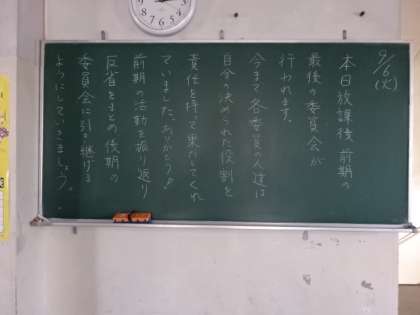 9/6(火)
本日放課後 前期の
最後の委員会が
行われます。
今まで各委員の人達は
自分の決められた役割を
責任を持って果たしてくれ
ていました。ありがとう!!
前期の活動を振り返り
反省をまとめ後期の
委員会に引き継げる
ようにしていきましょう。